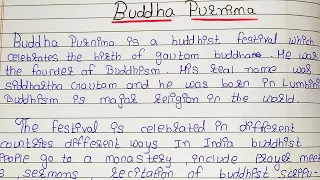 Buddha Purnima
Buddha Purnima is a buddhist festival which
celebrates the birth of gautam buddha. He was
the founder of Buddhism. His real name was
siddhartha Gautam and he was born in Lumbini
Buddhism is major religion in the world.
The festival is celebrated in different
countries different ways In India buddhist
people go to a monastery, include prayer meet
s, sermons recitation of buddhist scriptu-